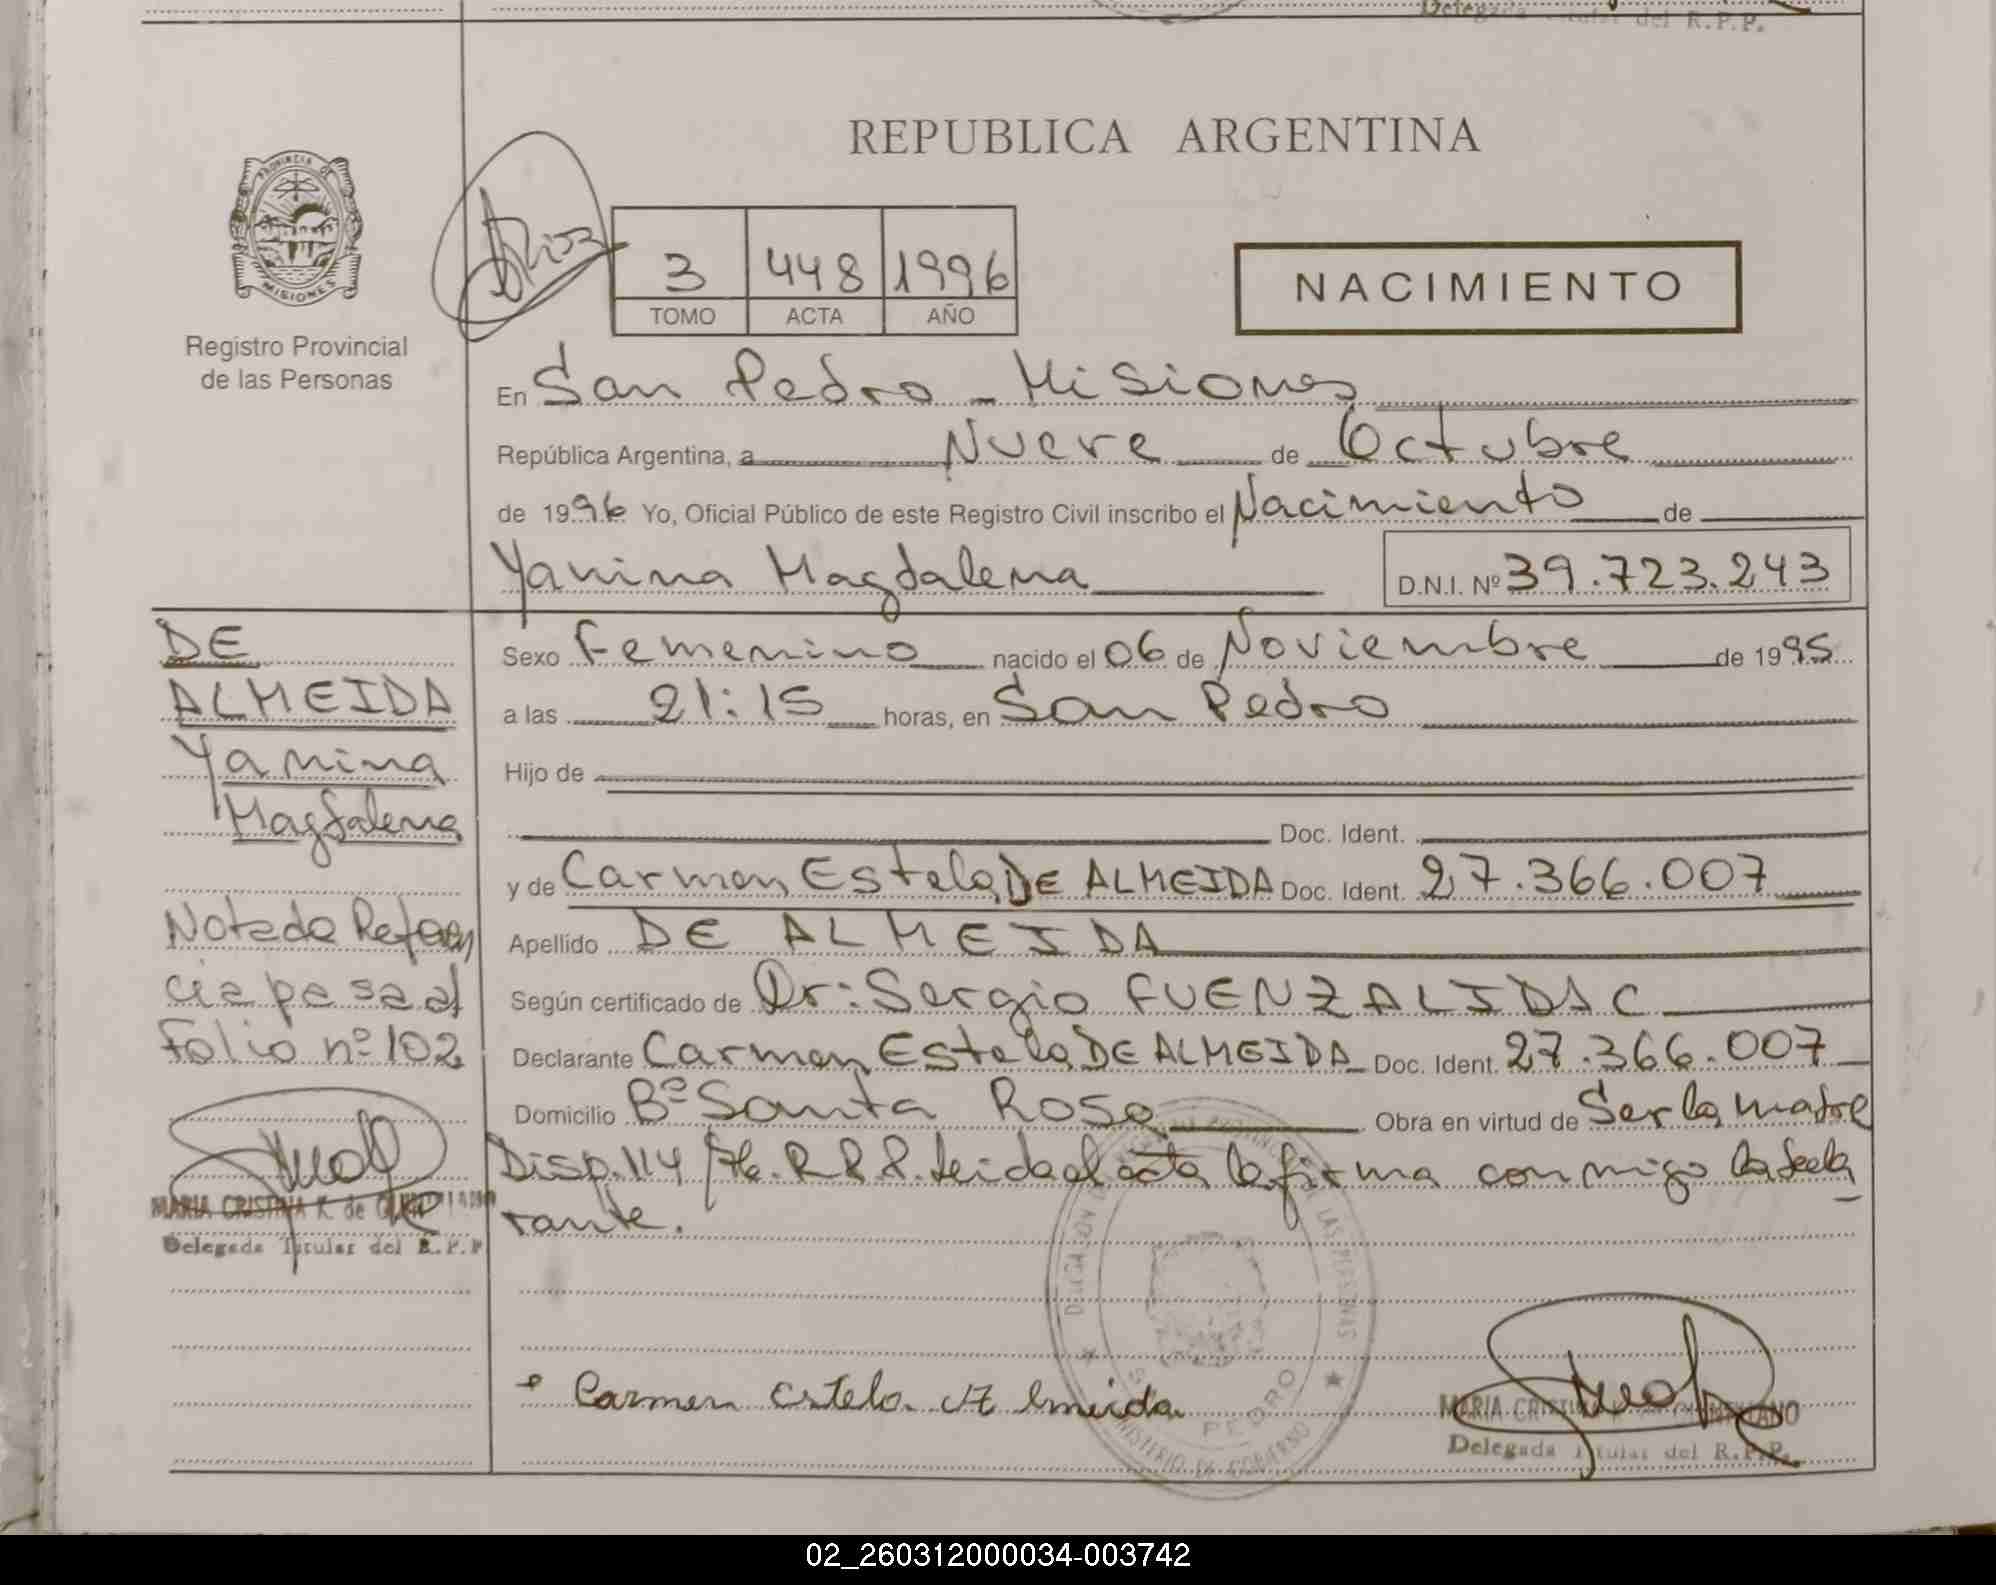 Delegada Titular del R.P.P.
REPUBLICA ARGENTINA
PROVINCIA DE
MISIONES
Registro Provincial
de las Personas
3 448 1996
TOMO ACTA AÑO
NACIMIENTO
En San Pedro - Misiones
República Argentina, a Nueve de Octubre
de 1996 Yo, Oficial Público de este Registro Civil inscribo el Nacimiento de
Yanina Magdalena D.N.I. Nº 39.723.243
DE
ALMEIDA
Yanina
Magdalena
Nota de Referen
cia pasa al
folio nº 102
MARIA CRISTINA K. de
Delegada Titular del R.P.P
Sexo Femenino nacido el 06 de Noviembre de 1995
a las 21:15 horas, en San Pedro
Hijo de
Doc. Ident.
y de Carmen Estela DE ALMEIDA Doc. Ident. 27.366.007
Apellido DE ALMEIDA
Según certificado de Dr: Sergio FUENZALIDA C
Declarante Carmen Estela DE ALMEIDA Doc. Ident. 27.366.007
Domicilio Bº Santa Rosa Obra en virtud de Ser la madre
Disp. 114/76. R.P.P. Leida el acta la firma conmigo la decla
rante.
Carmen Estela de Almeida
PEDRO
MINISTERIO DE GOBIERNO
MARIA CRISTINA K.
Delegada Titular del R.P.P.
02_260312000034-003742